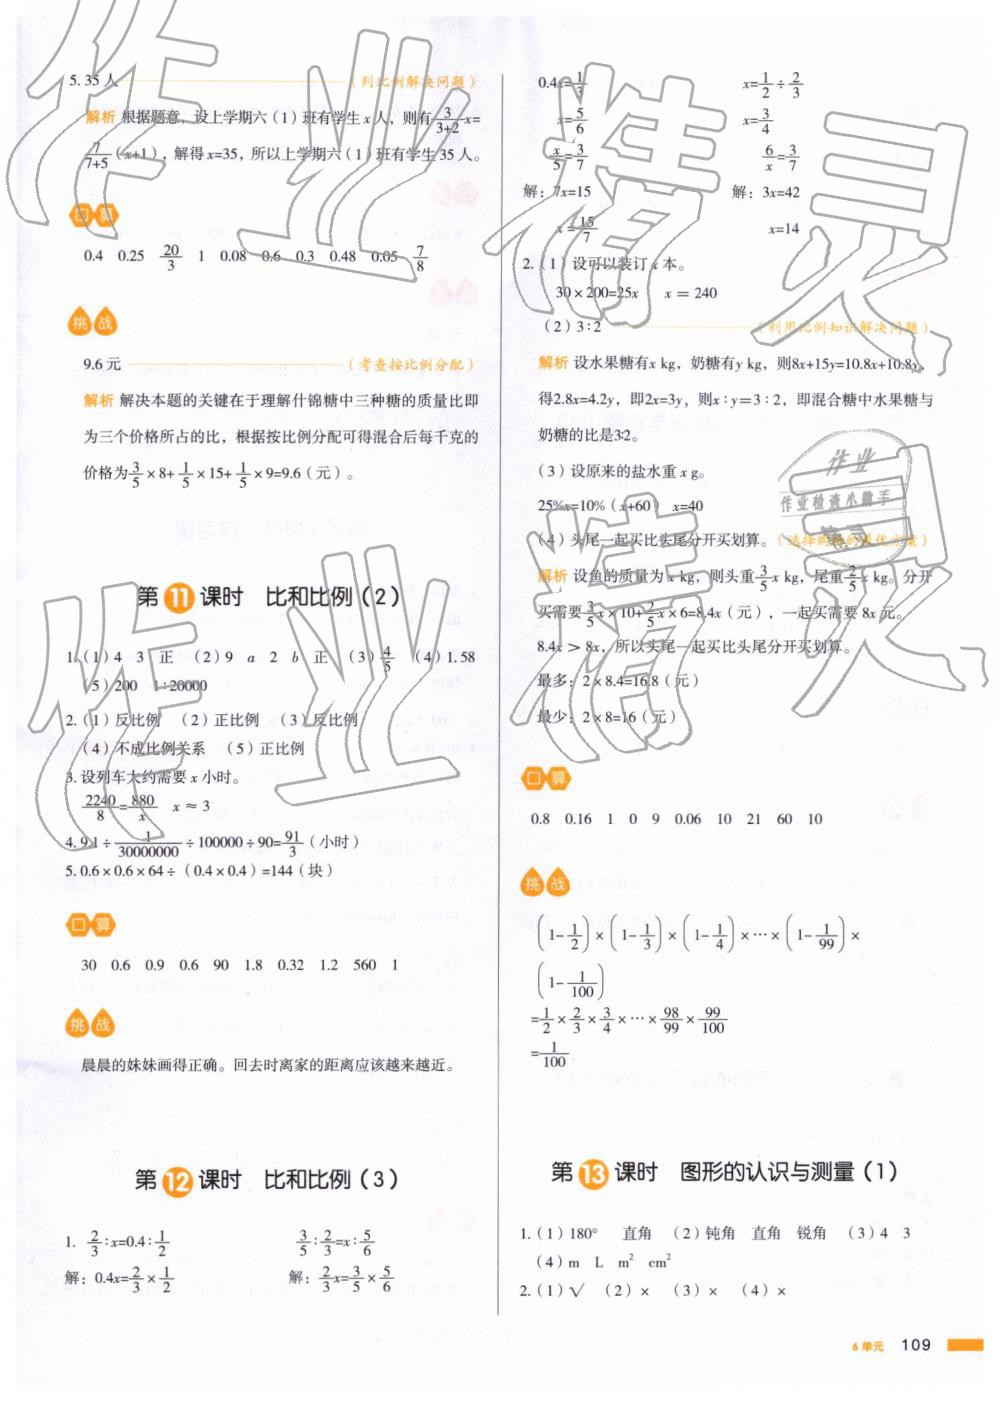 5. 35 人 (列比例解决问题)
解析 根据题意，设上学期六（1）班有学生 x 人，则有 3/(3+2) x=
7/(7+5) (x+1)，解得 x=35，所以上学期六（1）班有学生 35 人。
口算
0.4 0.25 20/3 1 0.08 0.6 0.3 0.48 0.05 7/8
挑战
9.6 元 (考查按比例分配)
解析 解决本题的关键在于理解什锦糖中三种糖的质量比即
为三个价格所占的比，根据按比例分配可得混合后每千克的
价格为 3/5 × 8+ 1/5 × 15+ 1/5 × 9=9.6（元）。
第 11 课时 比和比例（2）
1.（1）4 3 正 （2）9 a 2 b 正 （3）4/5 （4）1.58
（5）200 1∶20000
2.（1）反比例 （2）正比例 （3）反比例
（4）不成比例关系 （5）正比例
3. 设列车大约需要 x 小时。
2240/8 = 880/x x ≈ 3
4. 9.1 ÷ 1/30000000 ÷ 100000 ÷ 90= 91/3（小时）
5. 0.6 × 0.6 × 64 ÷（0.4 × 0.4）=144（块）
口算
30 0.6 0.9 0.6 90 1.8 0.32 1.2 560 1
挑战
晨晨的妹妹画得正确。回去时离家的距离应该越来越近。
第 12 课时 比和比例（3）
1. 2/3∶x=0.4∶1/2 3/5∶2/3=x∶5/6
解：0.4x= 2/3 × 1/2 解：2/3 x= 3/5 × 5/6
0.4x= 1/3 x= 1/2 ÷ 2/3
x= 5/6 x= 3/4
x/5 = 3/7 6/x = 3/7
解：7x=15 解：3x=42
x = 15/7 x=14
2.（1）设可以装订 x 本。
30 × 200=25x x = 240
（2）3∶2 (利用比例知识解决问题)
解析 设水果糖有x kg，奶糖有y kg，则8x+15y=10.8x+10.8y，
得2.8x=4.2y，即2x=3y，则x∶y=3∶2，即混合糖中水果糖与
奶糖的比是3∶2。
（3）设原来的盐水重 x g。
25%x=10%（x+60） x=40
（4）头尾一起买比头尾分开买划算。
解析 设鱼的质量为 x kg，则头重 3/5 x kg，尾重 2/5 x kg。分开
买需要 3/5 x × 10+ 2/5 x × 6=8.4x（元），一起买需要 8x 元。
8.4x > 8x，所以头尾一起买比头尾分开买划算。
最多：2 × 8.4=16.8（元）
最少：2 × 8=16（元）
口算
0.8 0.16 1 0 9 0.06 10 21 60 10
挑战
(1- 1/2) × (1- 1/3) × (1- 1/4) × ⋯ × (1- 1/99) ×
(1- 1/100)
= 1/2 × 2/3 × 3/4 × ⋯ × 98/99 × 99/100
= 1/100
第 13 课时 图形的认识与测量（1）
1.（1）180° 直角 （2）钝角 直角 锐角 （3）4 3
（4）m L m² cm²
2.（1）√ （2）× （3）× （4）×
6 单元 109
作业精灵
作业精灵
作业
作业检查小助手